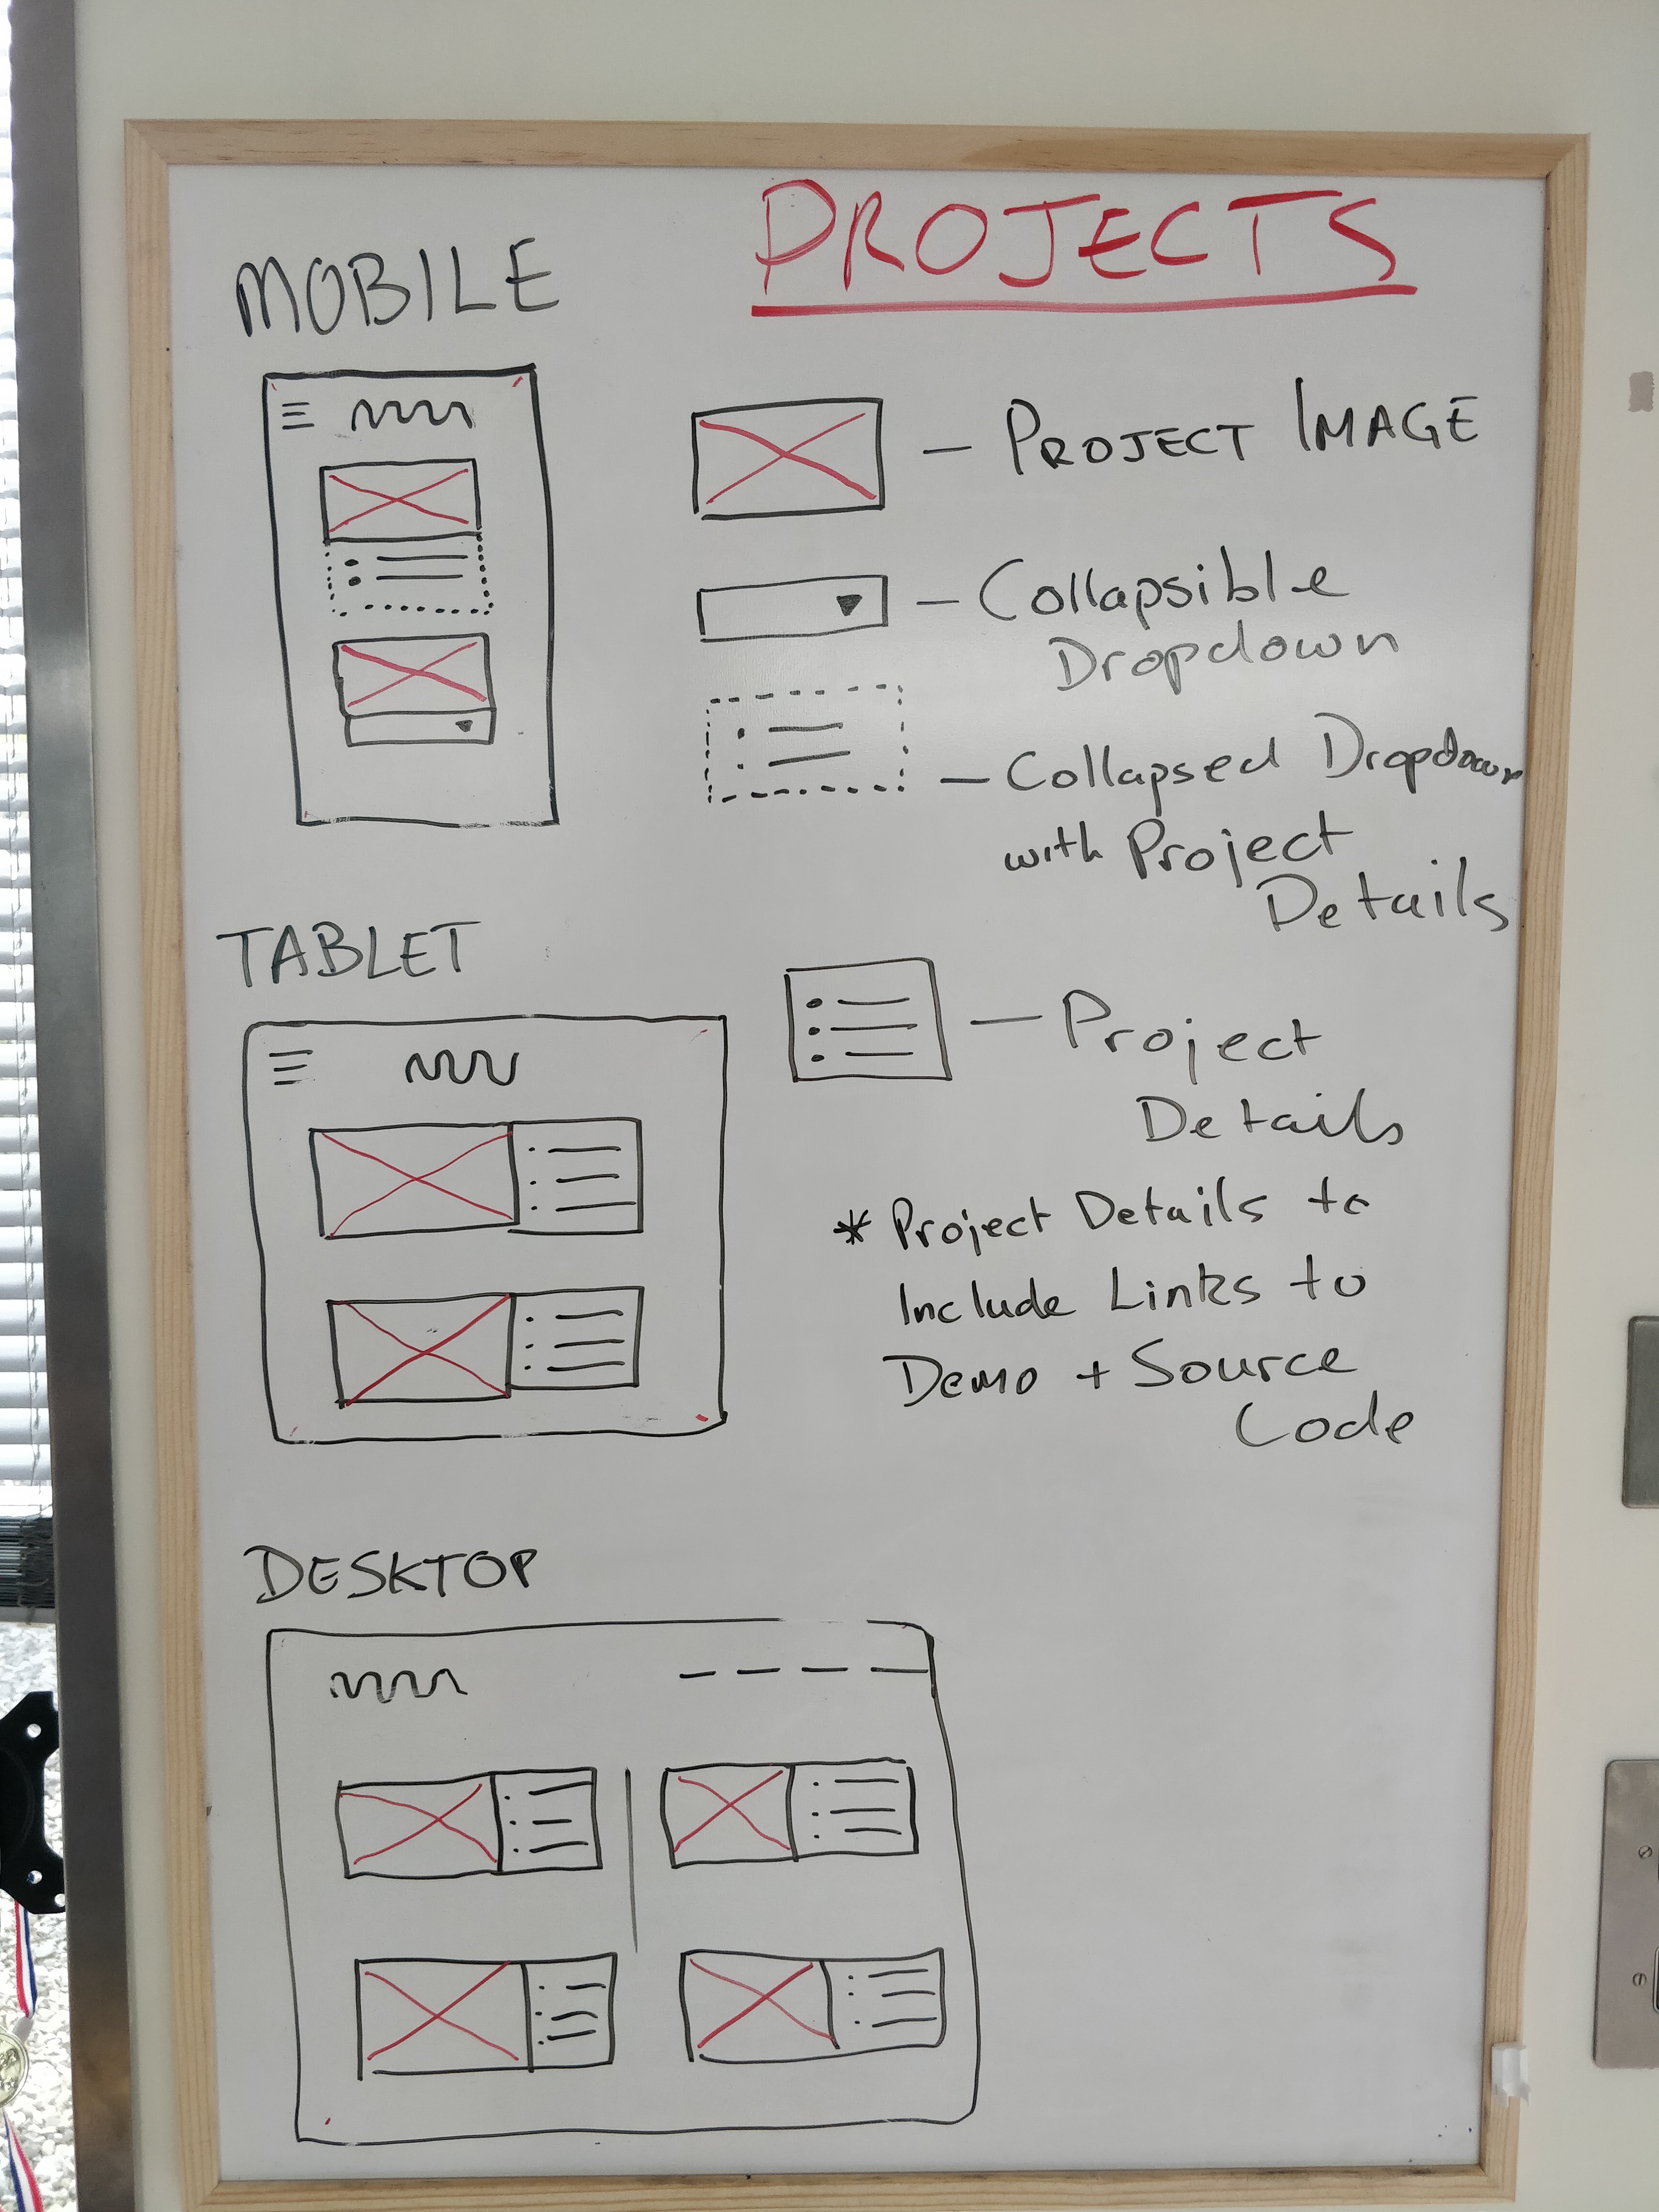 PROJECTS
MOBILE
— PROJECT IMAGE
— Collapsible
Dropdown
— Collapsed Dropdown
with Project
Details
TABLET
— Project
Details
* Project Details to
Include Links to
Demo + Source
Code
DESKTOP